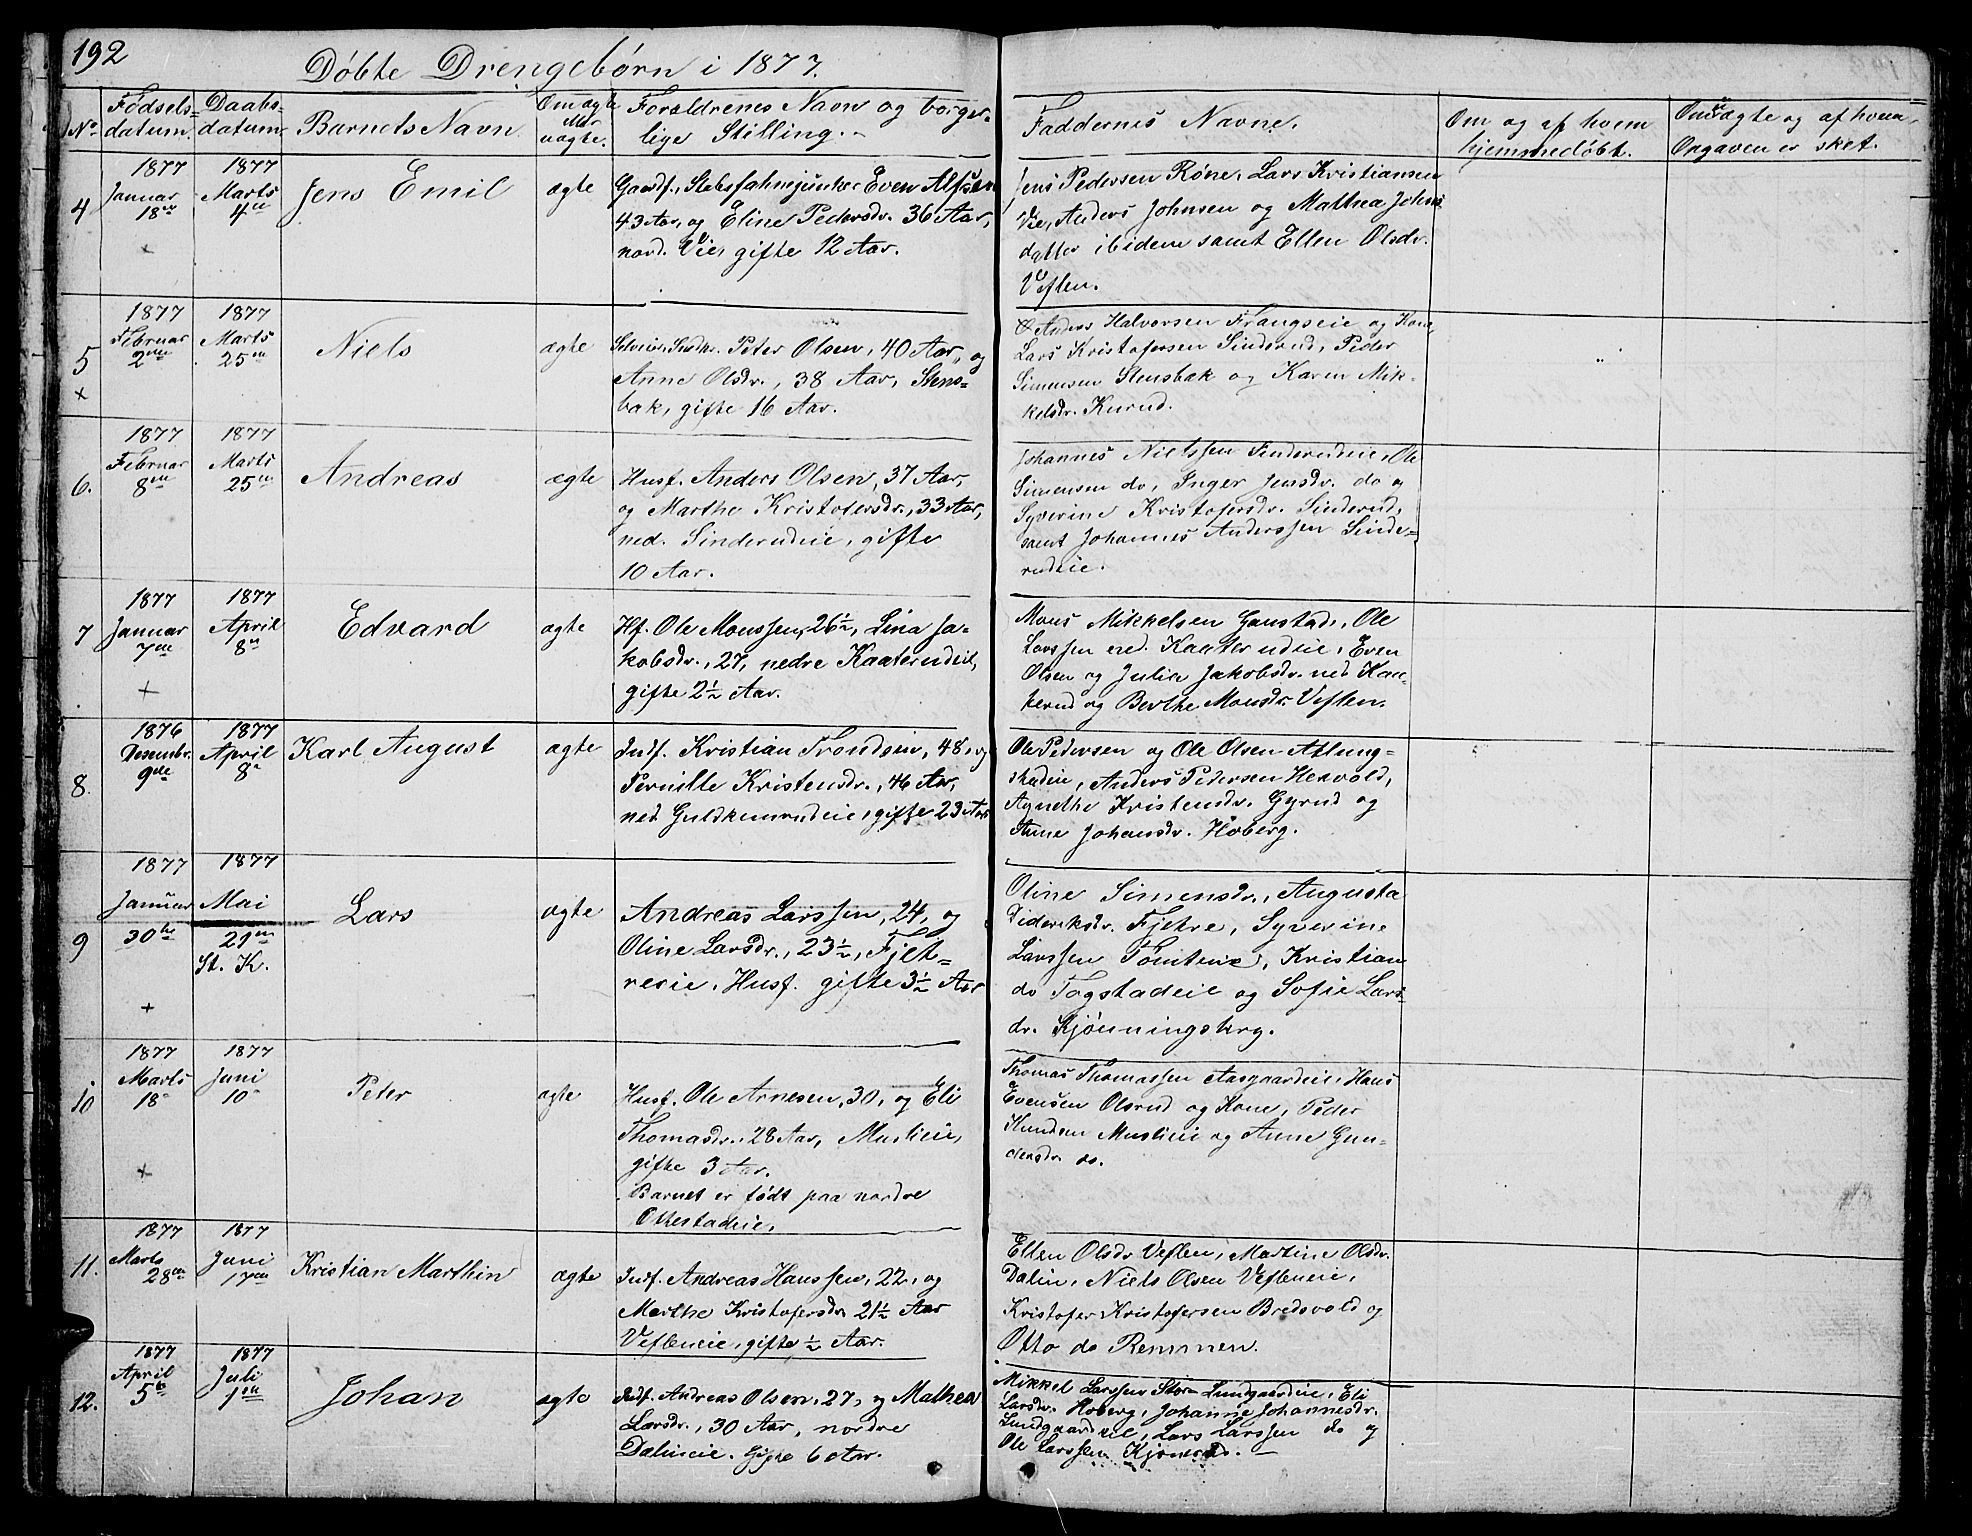 192
Døbte Drengebørn i 1877.
No
Fødsels-
datum.
Daabs-
datum.
Barnets Navn
Om ægte
eller
uægte.
Forældrenes Navn og borger-
lige Stilling.
Faddernes Navne.
Om og af hvem
hjemmedøbt.
Om uægte og af hvem
Opgaven er sket.
4
1877
Januar
18de
+
1877
Marts
4de
Jens Emil
ægte
Gaardf., Stabsfahnejunker Even Alfsen
43 Aar, og Eline Pedersdr. 36 Aar,
nord. Vie, gifte 12 Aar.
Jens Pedersen Røne, Lars Kristiansen
Vie, Anders Johnsen og Mathea Johns
datter ibidem samt Ellen Olsdr.
Veflen.
5
+
1877
Februar
2den
1877
Marts
25de
Niels
ægte
Peter Olsen, 40 Aar, og
Anne Olsdr., 38 Aar, Stens-
bæk, gifte 16 Aar.
Anders Halvorsen Frangseie og Kone,
Lars Kristofersen Sinderud, Peder
Simensen Stensbæk og Karen Mik-
kelsdr. Kurud.
"
6.
1877
Februar
8de
1877
Marts
25de
Andreas
ægte
Husf. Anders Olsen, 37 Aar,
og Marthe Kristofersdr., 33 Aar,
ned. Sinderudeie, gifte
10 Aar.
Johannes Nielssen Sinderudeie, Ole
Simensen do, Inger Jensdr. do og
Syverine Kristofersdr. Sinderud,
samt Johannes Anderssen Sinde-
rudeie.
7
1877
Januar
7de
+
1877
April
8de
Edvard
ægte
Hf. Ole Monssen, 26½, Lina Ja-
kobsdr., 27, nedre Kaaterudeie,
gifte 2½ Aar.
Mons Mikkelsen Gaustad, Ole
Larssen ned. Kaaterudeie, Even
Olsen og Julia Jakobsdr. ned Kaa-
terud og Berthe Monsdr. Veflen.
8.
1876
Desembr.
9de
1877
April
8de
Karl August
ægte
Indf. Kristian Trondsen, 48, og
Pernille Kristensdr., 46 Aar,
ned Guldkunrudeie, gifte 23 Aar
Ole Pedersen og Ole Olsen Atlung-
stadeie, Anders Pedersen Hexvold,
Agnethe Kristensdr. Gyrud og
Anne Johansdr. Hoberg.
9
1877
Januar
30te
+
1877
Mai
21de
St. K.
Lars
ægte
Andreas Larssen, 24, og
Oline Larsdr., 23½, Fjet-
reeie, Husf. gifte 3½ Aar
Oline Simensdr., Augusta
Dideriksdr. Fjetre, Syverine
Larssen Tomteeie, Kristian
do Togstadeie og Sofie Lars-
dr. Kjønningsberg.
10
1877
Marts
18de
+
1877
Juni
10de
Peter
ægte
Husf. Ole Arnesen, 30, og Eli
Thomasdr., 28 Aar, Muslieie,
gifte 3 Aar.
Barnet er født paa nordre
Ottestadeie.
Thomas Thomassen Aasgaardeie, Hans
Evensen Olsrud og Kone, Peder
Knudsen Muslieie og Anne Gun-
dersdr. do.
11.
1877
Marts
28de
1877
Juni
17de
Kristian Marthin
ægte
Indf. Andreas Hanssen, 22, og
Marthe Kristofersdr. 21½ Aar
Vefleneie, gifte ½ Aar.
Ellen Olsdr Veflen, Martine Olsdr.
Dalin, Niels Olsen Vefleneie,
Kristofer Kristofersen Bredvold og
Otto do Remmen.
12.
1877
April
5te
1877
Juli
1ste
Johan
ægte
Indf. Andreas Olsen, 27, og Mathea
Larsdr., 30 Aar, nordre
Dalineie. Gifte 6 Aar.
Mikkel Larssen Stor-Lundgaardeie, Eli
Larsdr. Hoberg, Johanne Johannesdr.
Lundgaardeie, Lars Larssen do og
Ole Larssen Kjønerud.